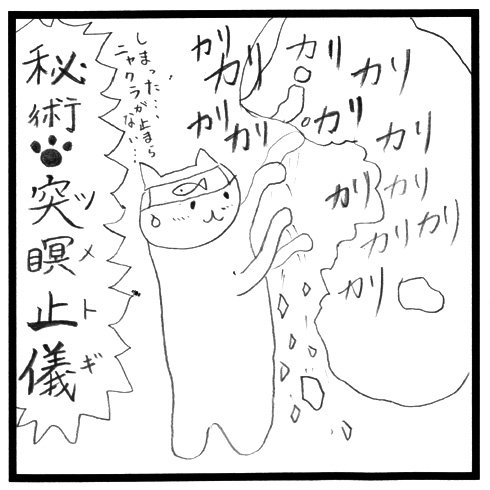 カリ
カリ
カリ
カリ
カリ
カリ
カリ
カリ
カリ
カリ
カリ
カリ
カリ
しまった…、
ニャクラが止まら
ない…
秘術
突瞑止儀
ツメトギ